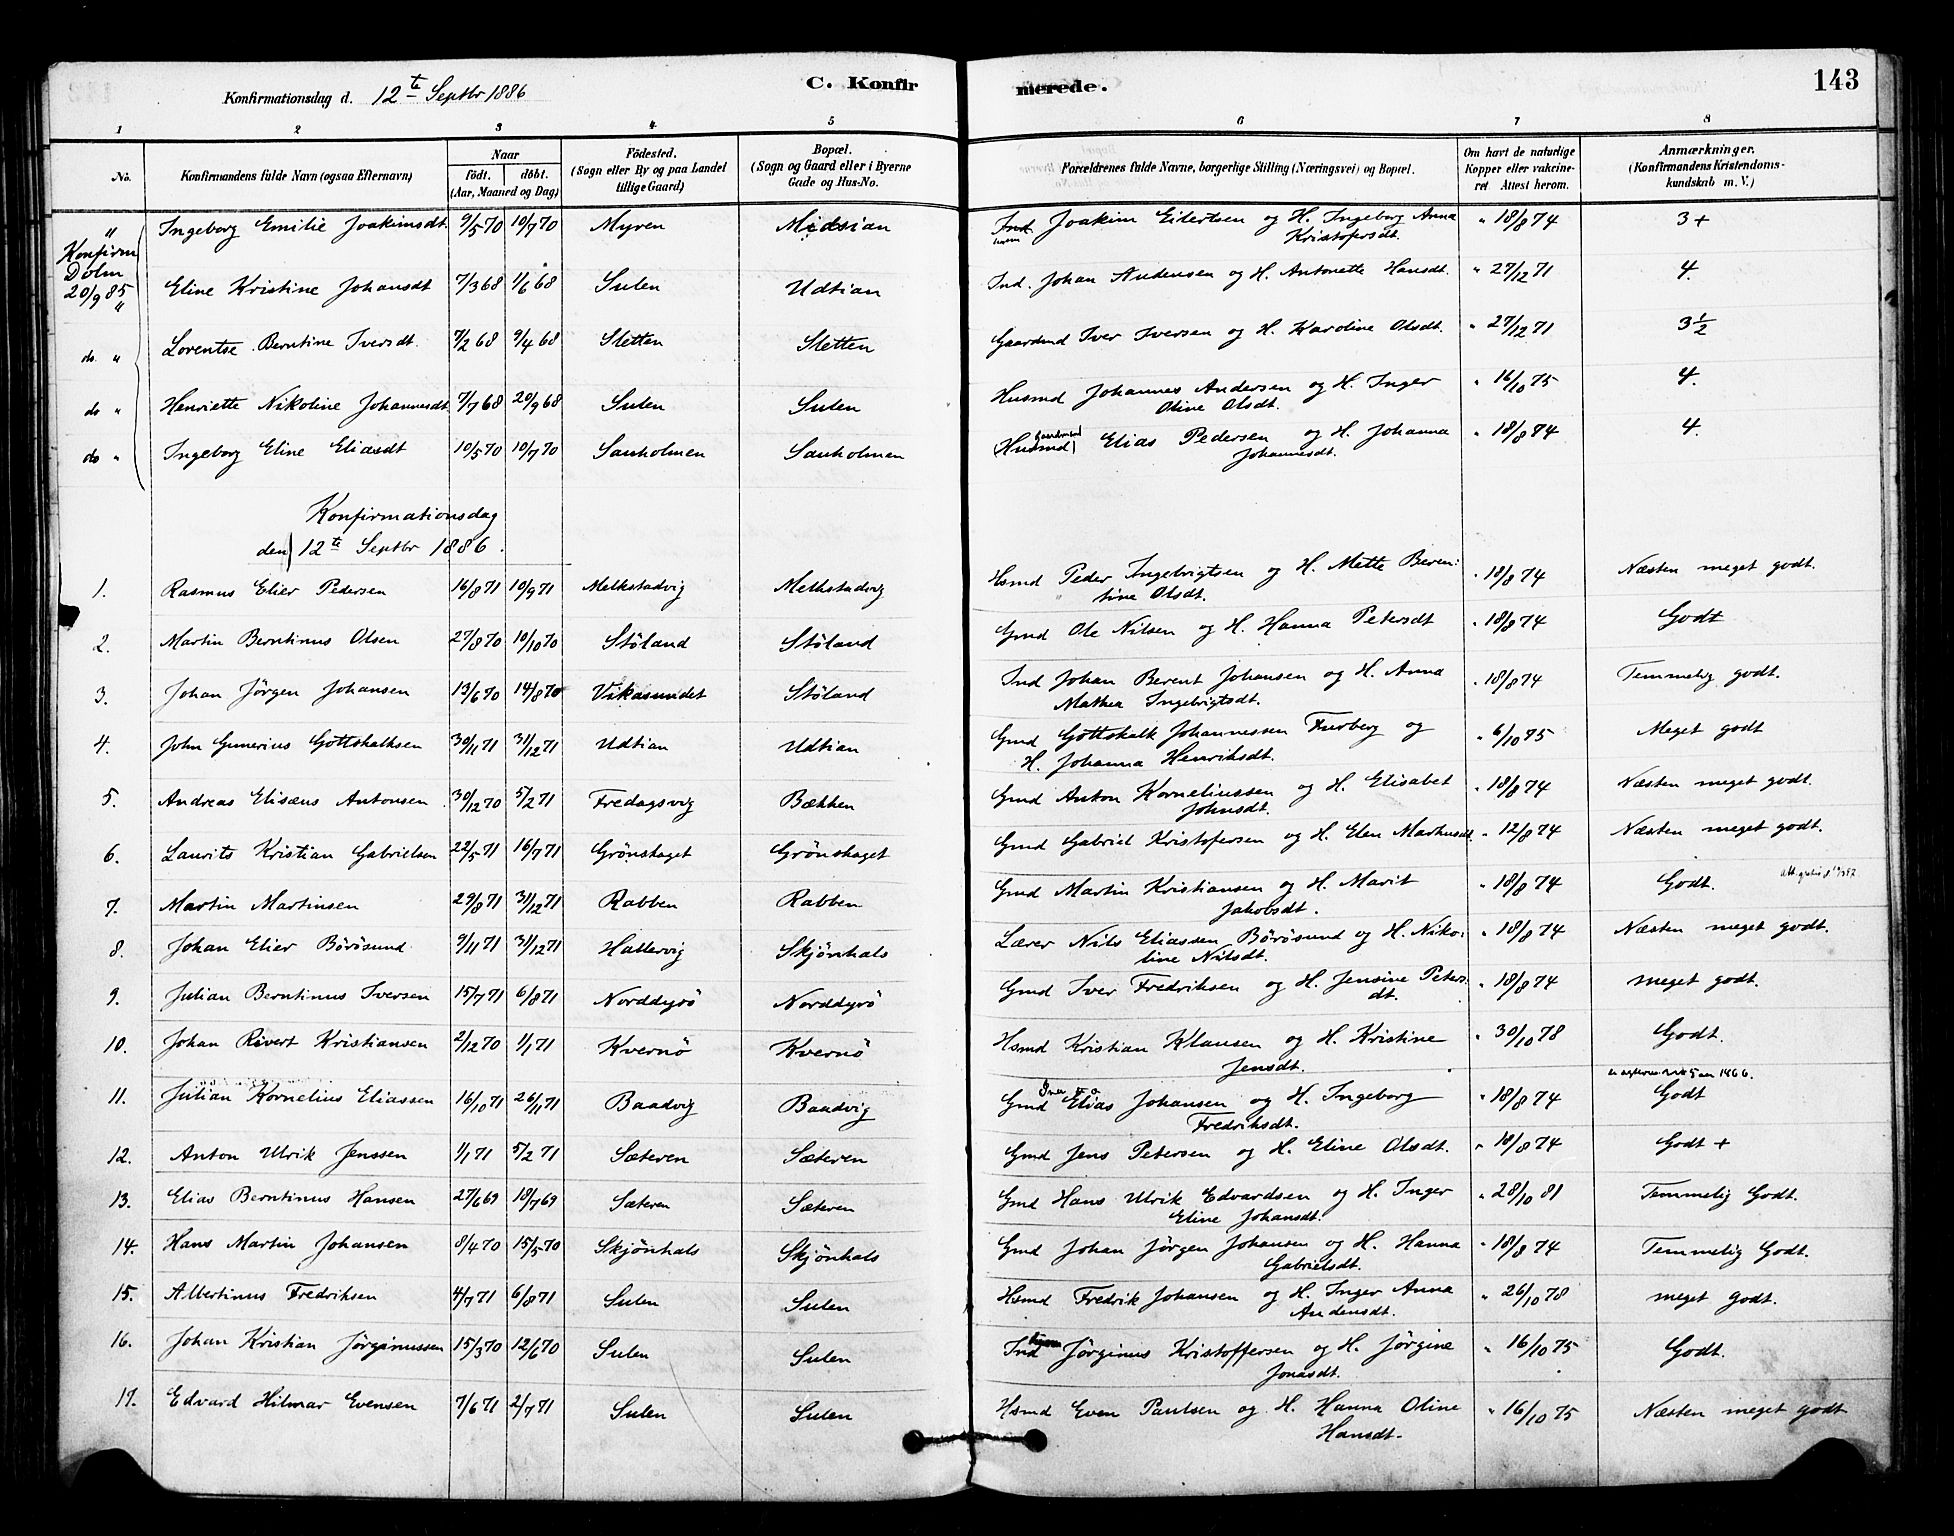 143
Konfirmationsdag d. 12te Septbr 1886
C. Konfirmerede.
1 2 3 4 5 6 7 8
No.
Konfirmandens fulde Navn (ogsaa Efternavn)
Naar
födt. döbt.
(Aar, Maaned og Dag)
Födested.
(Sogn eller By og paa Landet
tillige Gaard)
Bopæl.
(Sogn og Gaard eller i Byerne
Gade og Hus-No.
Forældrenes fulde Navne, borgerlige Stilling (Næringsvei) og Bopæl.
Om havt de naturlige
Kopper eller vakcine-
ret Attest herom.
Anmærkninger.
(Konfirmandens Kristendoms-
kundskab m. V.)
" Ingeborg Emilie Joakimsdt 9/5 70 10/7 70 Myren Midsian Ind Joakim Eilertsen og H. Ingeborg Anna " 18/8 74 3+
Kristofersdt.
Konfirm
Dolm
20/9 85
" Eline Kristine Johansdt 7/3 68 1/6 68 Sulen Udtian Ind. Johan Andensen og H. Antonette Hansdt. " 27/12 71 4.
do " Lorentse Berntine Iversdt. 7/2 68 9/4 68 Sletten Sletten Gaardmd Iver Iversen og H. Karoline Olsdt. " 27/12 71 3 1/2
do " Henriette Nikoline Johannesdt 7/7 68 20/9 68 Sulen Sulen Husmd Johannes Andersen og H. Inger " 16/10 75 4.
Oline Olsdt.
do " Ingeborg Eline Eliasdt 10/5 70 10/7 70 Sanholmen Sanholmen (Husmd) Elias Pedersen og H. Johanna " 18/8 74 4.
Johannesdt.
Konfirmationsdag
den 12te Septbr 1886.
1. Rasmus Elier Pedersen 16/8 71 10/9 71 Melkstadvig Melkstadvig Hsmd Peder Ingebrigtsen og H. Mette Beren: " 18/8 74 Næsten meget godt.
tine Olsdt.
2. Martin Berntinus Olsen 27/8 70 10/10 70 Stöland Stöland Gmd Ole Nilsen og H. Hanna Petersdt " 18/8 74 Godt
3. Johan Jörgen Johansen 13/6 70 14/8 70 Vikasundet Stöland Ind Johan Berent Johansen og H. Anna " 18/8 74 Temmelig godt.
Mathea Ingebrigtsdt.
4. John Gunerius Gottskalksen 30/11 71 31/12 71 Udtian Udtian Gmd Gottskalk Johannessen Furberg og " 6/10 75 Meget godt
H. Johanna Henriksdt.
5. Andreas Elisæus Antonsen 30/12 70 5/2 71 Fredagsvig Bækken Gmd Anton Korneliussen og H. Elisabet " 18/8 74 Næsten meget godt.
Johnsdt.
6. Laurits Kristian Gabrielsen 22/5 71 16/7 71 Grönskaget Grönskaget Gmd Gabriel Kristofersen og H. Elen Markusdt " 12/8 74 Næsten meget godt.
7. Martin Martinsen 29/8 71 31/12 71 Rabben Rabben Gmd Martin Kristiansen og H. Marit " 18/8 74 Godt.
Jakobsdt.
8. Johan Elier Börösund 9/11 71 31/12 71 Hattervig Skjönhals Lærer Nils Eliassen Börösund og H. Niko: " 18/8 74 Næsten meget godt.
line Nilsdt.
9. Julian Berntinus Iversen 15/7 71 6/8 71 Norddyrö Norddyrö Gmd Iver Fredriksen og H. Jensine Peters: " 18/8 74 meget godt.
dt.
10. Johan Rivert Kristiansen 2/12 70 1/1 71 Kvernö Kvernö Hsmd Kristian Klausen og H. Kristine " 30/10 78 Godt.
Jensdt.
11. Julian Kornelius Eliassen 16/10 71 26/11 71 Baadvig Baadvig Gmd Elias Johansen og H. Ingeborg " 18/8 74 Godt
Fredriksdt.
12. Anton Ulrik Jenssen 1/1 71 5/2 71 Sæteren Sæteren Gmd Jens Petersen og H. Eline Olsdt. " 18/8 74 Godt +
13. Elias Berntinus Hansen 27/6 69 18/7 69 Sæteren Sæteren Gmd Hans Ulrik Edvardsen og H. Inger " 28/10 81 Temmelig Godt.
Eline Johansdt.
14. Hans Martin Johansen 8/4 70 15/5 70 Skjönhals Skjönhals Gmd Johan Jörgen Johansen og H. Hanna " 18/8 74 Temmelig Godt.
Gabrielsdt.
15. Albertinus Fredriksen 4/7 71 6/8 71 Sulen Sulen Hsmd Fredrik Johansen og H. Inger Anna " 26/10 78 meget godt.
Andensdt.
16. Johan Kristian Jörginussen 15/3 70 12/6 70 Sulen Sulen Ind Jörginus Kristoffersen og H. Jörgine " 16/10 75 Godt.
Jonasdt.
17. Edvard Hilmar Evensen 7/6 71 2/7 71 Sulen Sulen Hsmd Even Paulsen og H. Hanna Oline " 16/10 75 Næsten meget godt
Hansdt.